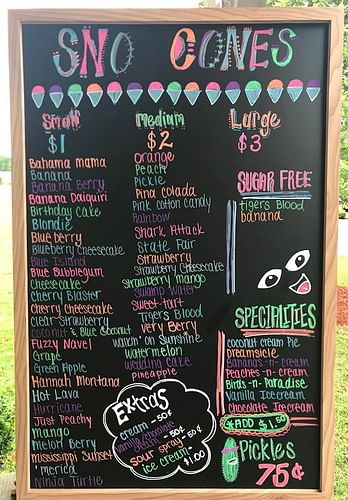 SNO CONES
Small
$1
Bahama mama
Banana
Banana Berry
Banana Daiquiri
Birthday Cake
Blondie
Blueberry
Blueberry Cheesecake
Blue Island
Blue Bubblegum
Cheesecake
Cherry Blaster
Cherry cheesecake
Clear Strawberry
Coconut & Blue Coconut
Fuzzy Navel
Grape
Green Apple
Hannah Montana
Hot Lava
Hurricane
Just Peachy
Mango
Melon Berry
Mississippi Sunset
'merica
Ninja Turtle
Medium
$2
Orange
Peach
Pickle
Pina colada
Pink cotton candy
Rainbow
Shark Attack
State Fair
Strawberry
Strawberry Cheesecake
Strawberry mango
Swamp Water
Sweet-tart
Tigers Blood
Very Berry
Walkin' on Sunshine
Watermelon
Wedding Cake
Pineapple
Extras
cream -50¢
vanilla/chocolate
cream -50¢
sour spray -50¢
ice cream-
$1.00
Large
$3
SUGAR FREE
Tigers Blood
banana
SPECIALTIES
coconut cream Pie
Dreamsicle
Bananas-n-cream
Peaches-n-cream
Birds-n-Paradise
Vanilla Icecream
Chocolate Icecream
*ADD $1.50
Pickles
75¢